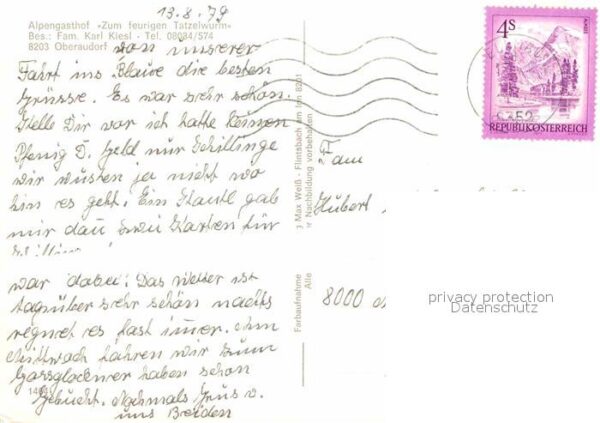 13.8.79
Alpengasthof »Zum feurigen Tatzelwurm«
Bes.: Fam. Karl Kiesl - Tel. 08034/574
8203 Oberaudorf
von unserer
Fahrt ins Blaue die besten
Grüsse. Es war sehr schön.
Stelle Dir vor ich hatte keinen
Pfenig D. Geld nur Schillinge
wir wusten ja nicht wo
hin es geht. Ein Staute gab
mir dan zwei Karten für
war dabei. Das Wetter ist
tagüber sehr schön nachts
regnet es fast imer. Am
Mittwoch fahren wir zum
Grossglockner haben schon
gebucht. Nochmals Grus v.
uns Beiden
Max Weiß - Flintsbach am Inn 8201
Nachbildung vorbehalten
Farbaufnahme
Alle
4S
REPUBLIK ÖSTERREICH
Fam
Hubert
8000
privacy protection
Datenschutz